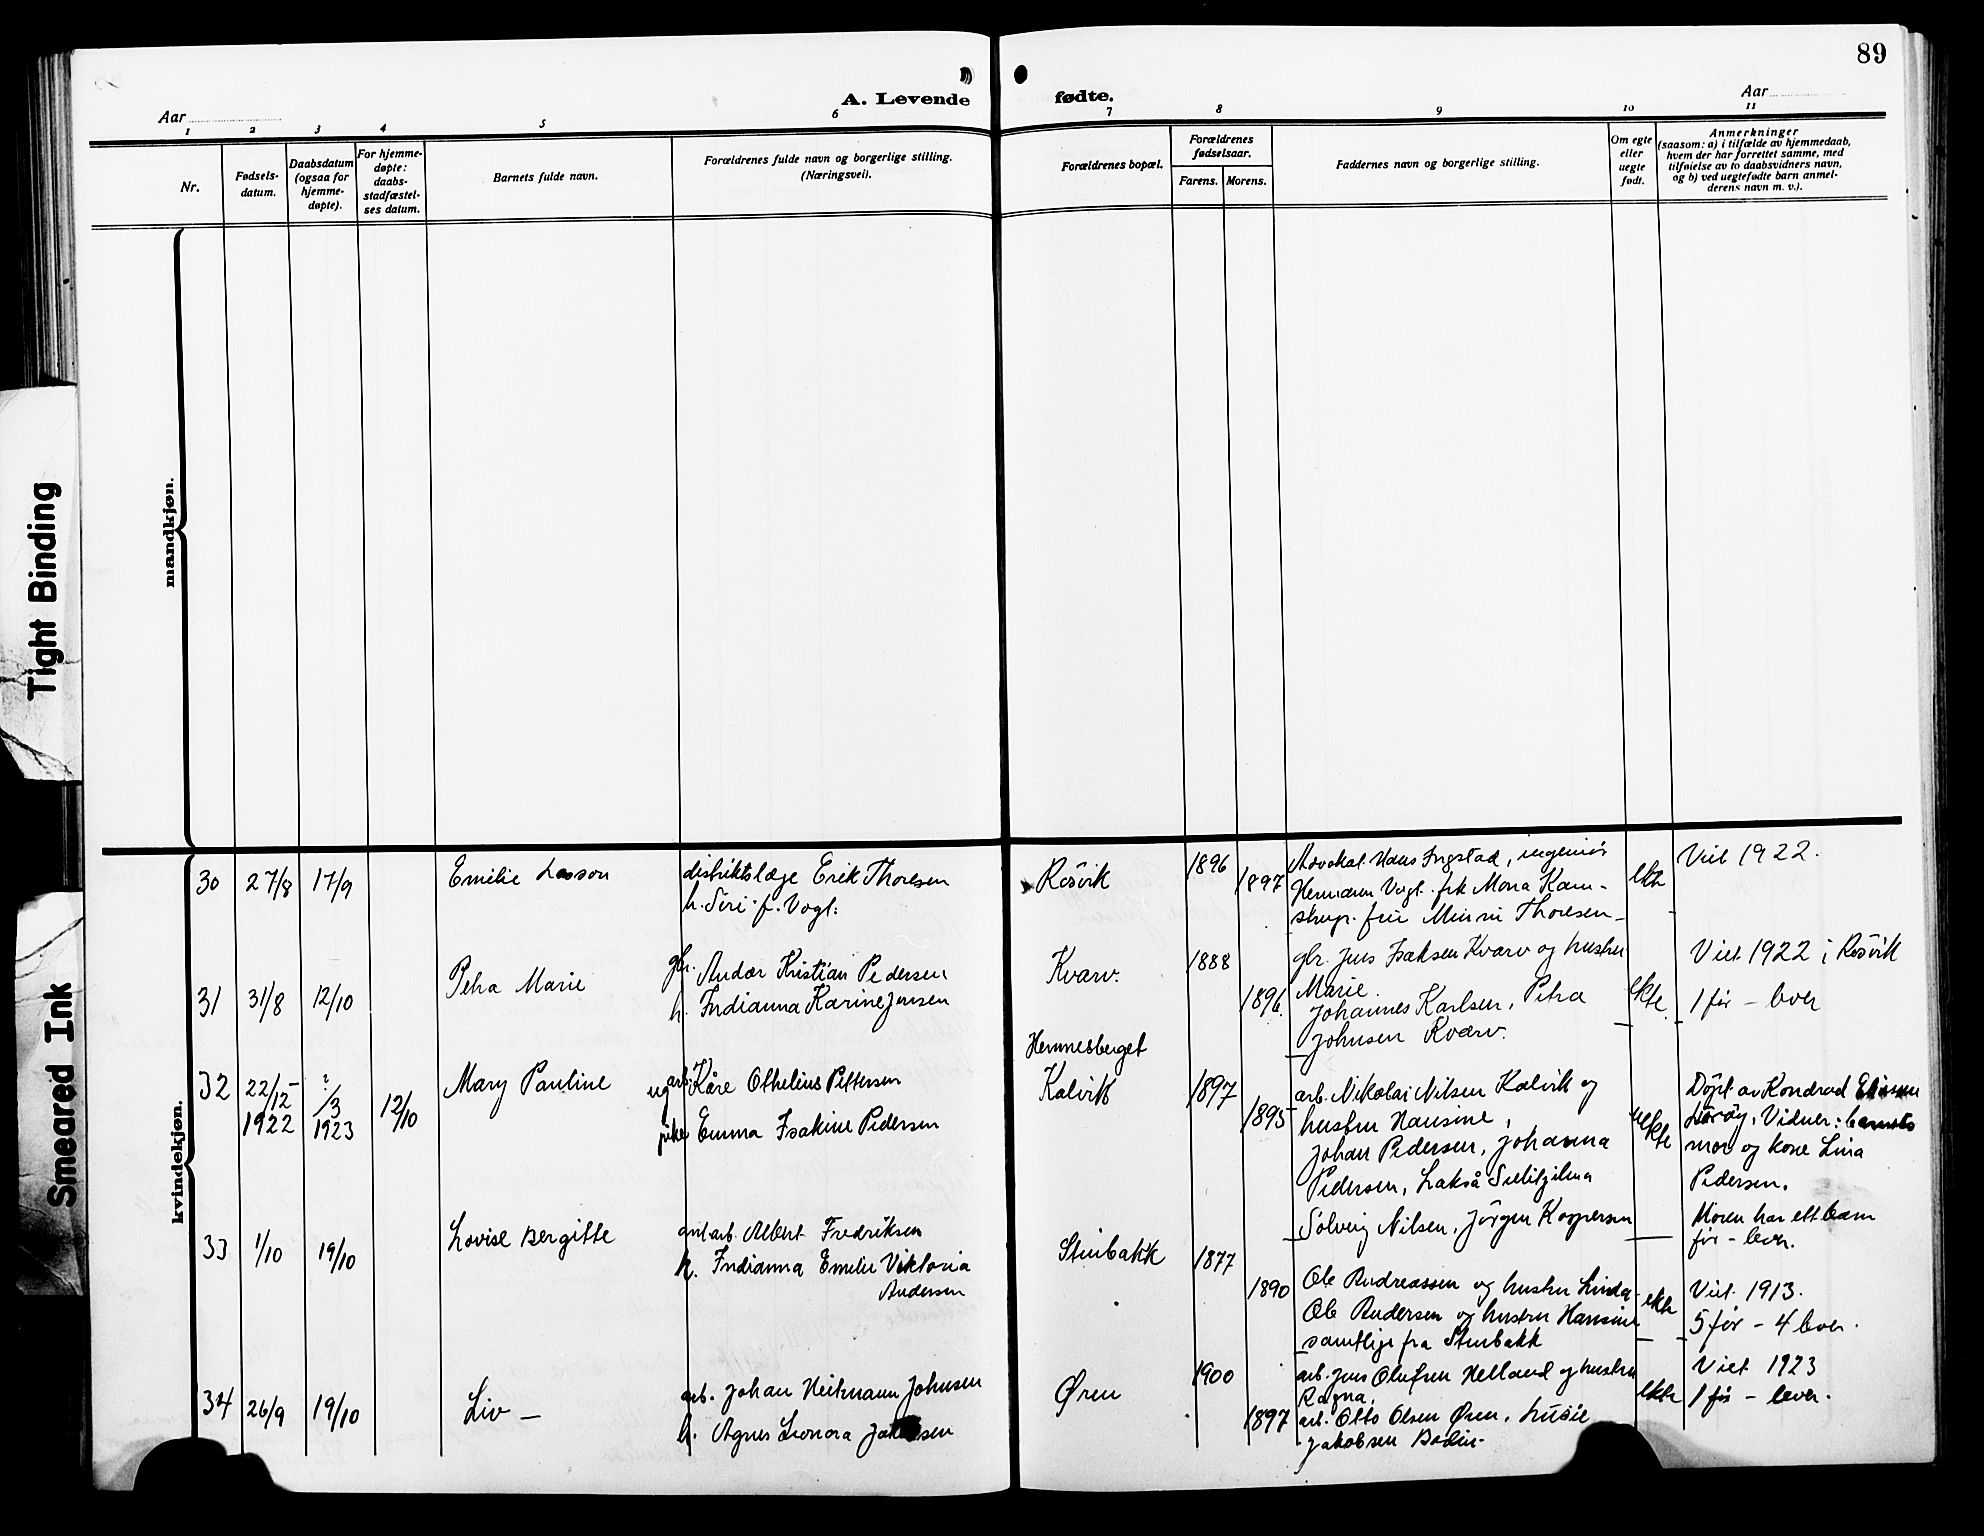 89
A. Levende fødte.
Aar
Aar
1 2 3 4 5 6 7 8 9 10 11
Nr.
Fødsels-
datum.
Daabsdatum
(ogsaa for
hjemme-
døpte).
For hjemme-
døpte:
daabs-
stadfæstel-
ses datum.
Barnets fulde navn.
Forældrenes fulde navn og borgerlige stilling.
(Næringsvei).
Forældrenes bopæl.
Forældrenes
fødselsaar.
Farens. Morens.
Faddernes navn og borgerlige stilling.
Om egte
eller
uegte
født.
Anmerkninger
(saasom: a) i tilfælde av hjemmedaab,
hvem der har forrettet samme, med
tilføielse av to daabsvidners navn,
og b) ved uegtefødte barn anmel-
derens navn m. v.).
mandkjøn.
kvindekjøn.
Tight Binding
Smeared Ink
30 27/8 17/9
Emilie Lasson
distriktslæge Erik Thoresen
h. Siri f. Vogt:
Røsvik
1896
1897
Advokat Hans Ingstad, ingeniør
Hermann Vogt. frk Mona Kam-
strup. frue Minni Thoresen
ekte
Viet 1922.
31 31/8 12/10
Petra Marie
gbr. Andor Kristian Pedersen
h. Indianna Karine Jensen
Kvarv.
1888
1896.
gbr. Jens Isaksen Kvarv og hustru
Marie.
Johannes Karlsen, Petra
Johnsen Kvarv.
ekte.
Viet 1922 i Røsvik
1 før - lever
32 22/12 1922
? /3 1923
12/10
Mary Pauline
ug arb. Kåre Othelius Pettersen
pike Emma Isakine Pedersen
Hemnesberget
Kalvik
1897
1895
arb. Nikolai Nilsen Kalvik og
hustru Hansine,
Johan Pedersen, Johanna
Pedersen, Lakså
Solveig Nilsen, Jörgen Kaspersen
uekte
Døpt av Kondrad
Vidner: barnets
mor og kone Lina
Pedersen.
Moren har ett barn
før - lever.
33 1/10 19/10
Lovise Bergitte
arb. Albert Fredriksen
h. Indianna Emelie Viktoria
Andersen
Stenbakk
1877
1890
Ole Andreassen og hustru Linda
Ole Andersen og hustru Hansine
samtlige fra Stenbakk
ekte
Viet 1913.
5 før - 4 lever.
34 26/9 19/10
Liv -
arb. Johan Heitmann Johnsen
h. Agnes Leonora
Øren
1900
1897
arb. Jens Olufsen Helland og hustru
Ragna,
arb. Otto Olsen Øren,
Jakobsen Bodin-
ekte
Viet 1923
1 før - lever.